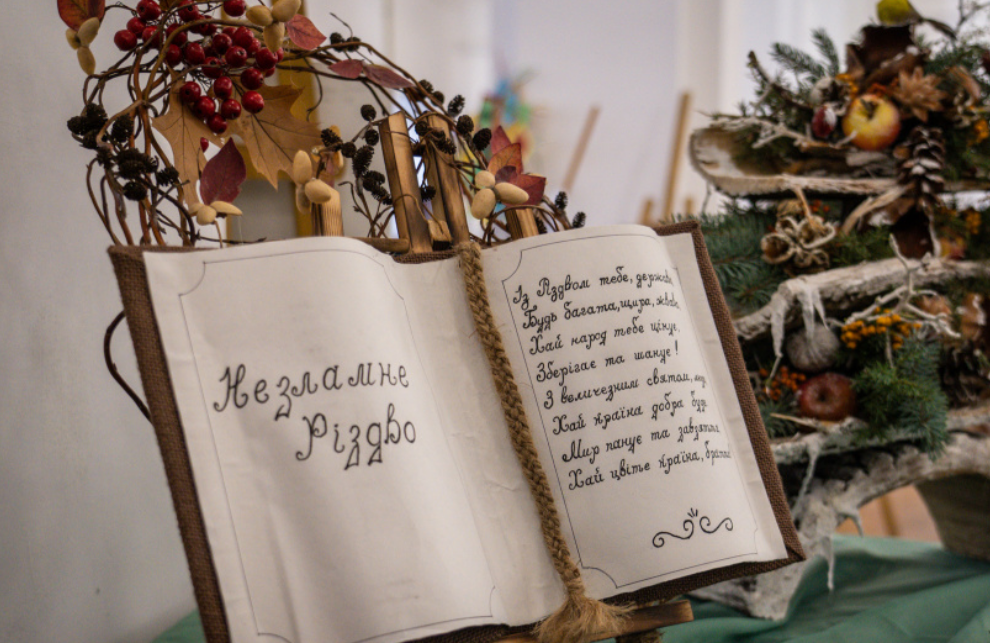 Незламне
Різдво
Із Різдвом тебе, державо
Будь багата, щира, жвава
Хай народ тебе цінує,
Зберігає та шанує!
З величезним святом,
Хай країна добра буде
Мир панує та завзяття
Хай цвіте країна, браття